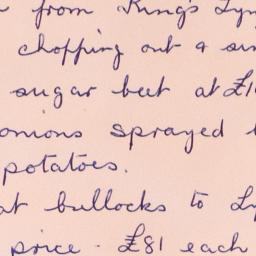 from King's Lyn
chopping out & sin
sugar beet at £1
onions sprayed
potatoes.
at bullocks to Ly
price - £81 each